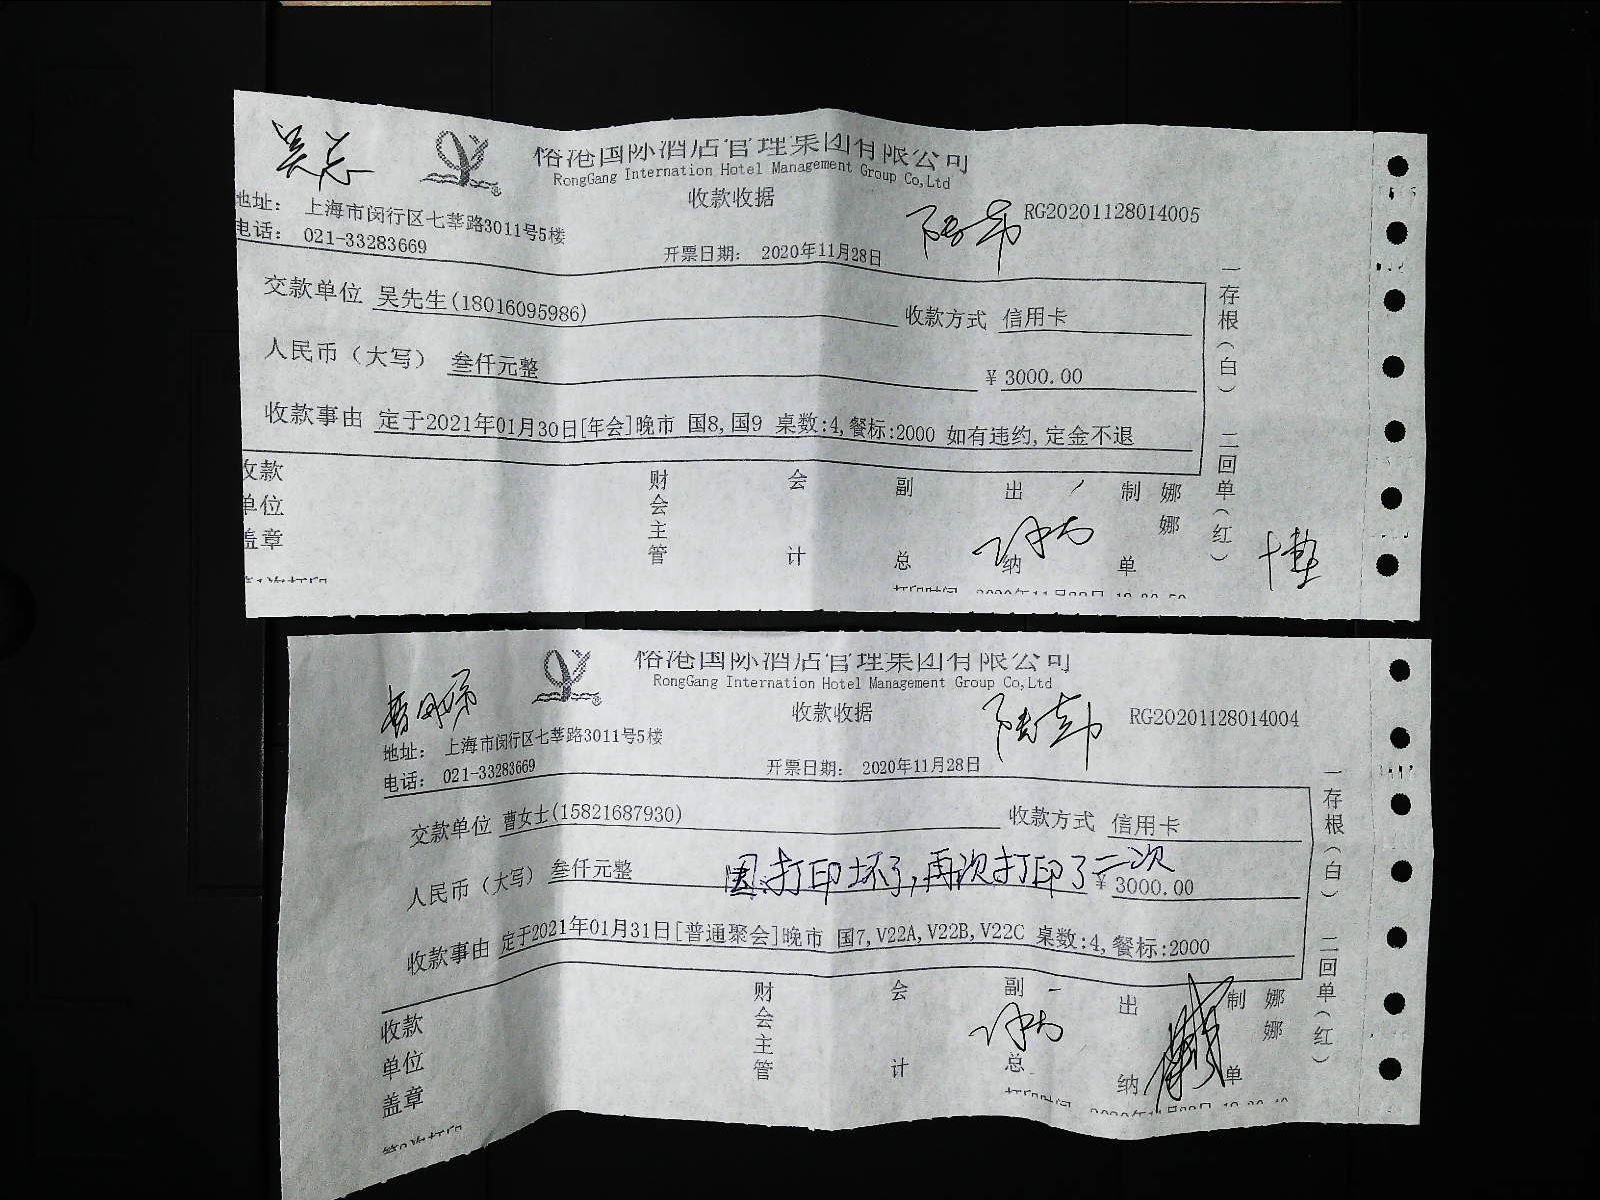 吴总
裕港国际酒店管理集团有限公司
RongGang International Hotel Management Group Co,Ltd
收款收据
地址： 上海市闵行区七莘路3011号5楼
RG20201128014005
电话： 021-33283669
开票日期： 2020年11月28日
交款单位 吴先生(18016095986) 收款方式 信用卡
人民币（大写） 叁仟元整 ¥ 3000.00
收款事由 定于2021年01月30日[年会]晚市 国8,国9 桌数:4,餐标:2000 如有违约,定金不退
一存根（白） 二回单（红）
收款单位盖章 财会主管 会计 副总 出纳 制单 娜娜
第1次打印
裕港国际酒店管理集团有限公司
RongGang International Hotel Management Group Co,Ltd
收款收据
RG20201128014004
地址： 上海市闵行区七莘路3011号5楼
电话： 021-33283669
开票日期： 2020年11月28日
交款单位 曹女士(15821687930) 收款方式 信用卡
因打印坏了,再次打印了二次
人民币（大写） 叁仟元整 ¥ 3000.00
收款事由 定于2021年01月31日[普通聚会]晚市 国7,V22A,V22B,V22C 桌数:4,餐标:2000
一存根（白） 二回单（红）
收款单位盖章 财会主管 会计 副总 出纳 制单 娜娜